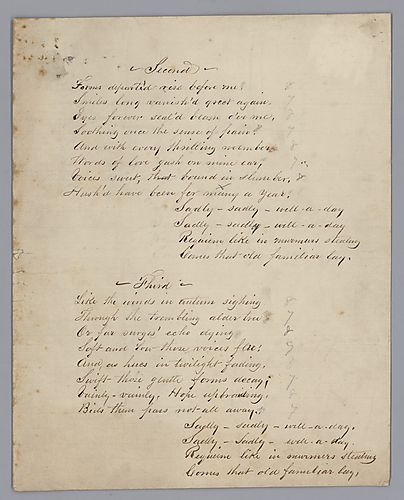 Second
Forms departed rise before me! 8
Smiles long vanish'd greet again. 7
Eyes forever seal'd beam o'er me, 8
Soothing once the sense of pain! 7
And with every thrilling number 8
Words of love gush on mine ear, 7
Voices sweet, that bound in slumber, 8
Hush'd have been for many a Year!
Sadly - sadly - well - a - day
Sadly - sadly - well - a - day.
Requiem like in murmers stealing
Comes that old familiar lay.
Third
Like the winds in autum sighing 8
Through the trembling alder tree 7
Or far surges' echo dying 8
Soft and low those voices flee!
And as hues in twilight fading,
Swift those gentle forms decay; 7
Vainly - vainly, Hope upbraiding, 8
Bids them pass not all away, 7
Sadly - sadly - well - a - day.
Sadly - Sadly - well - a - day.
Requiem like in murmers stealing
Comes that old familiar lay,